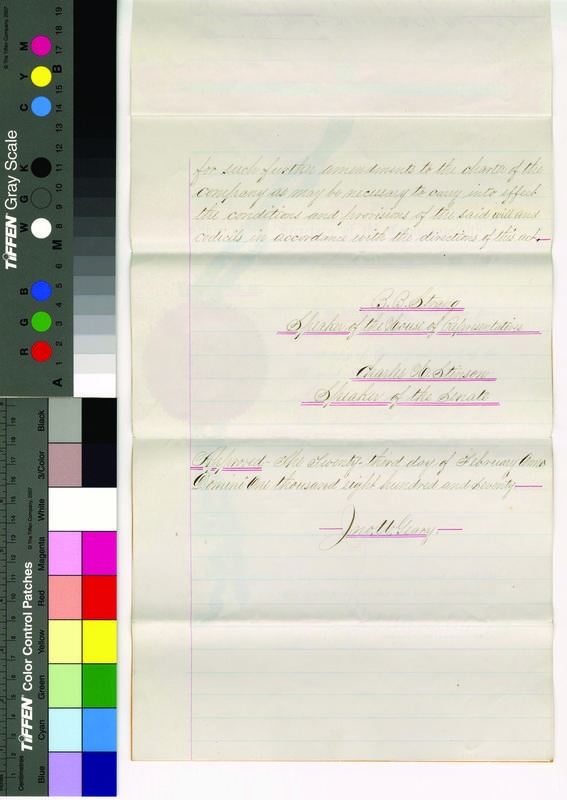 for such further amendments to the charter of the
company as may be necessary to carry into effect
the conditions and provisions of the said will and
codicils in accordance with the directions of this act.
B. B. Strang
Speaker of the House of Representatives
Charles H. Stinson
Speaker of the Senate
Approved - The Twenty-third day of February Anno
Domini One thousand eight hundred and seventy
Jno. W. Geary.
TIFFEN Gray Scale
© The Tiffen Company, 2007
R G B W G K C Y M
A 1 2 3 4 5 6 7 8 M 9 10 11 12 13 14 15 B 17 18 19
TIFFEN Color Control Patches
© The Tiffen Company, 2007
Centimetres
Blue Cyan Green Yellow Red Magenta White 3/Color Black